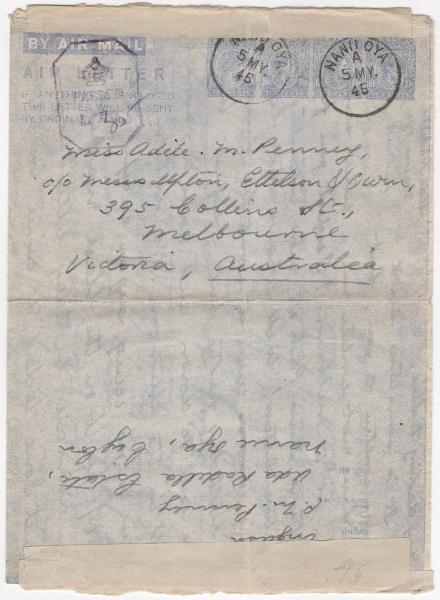 BY AIR MAIL
AIR LETTER
IF ANYTHING IS ENCLOSED
THIS LETTER WILL BE SENT
BY ORDINARY
NANU OYA
A
5 MY.
45
NANU OYA
A
5 MY.
45
Miss Adele. M. Penney,
c/o Messrs Upton, Ettelson &
395 Collins St.,
Melbourne
Victoria, Australia
P. M. Penney
Uda Radella Estate,
Nanu Oya, Ceylon